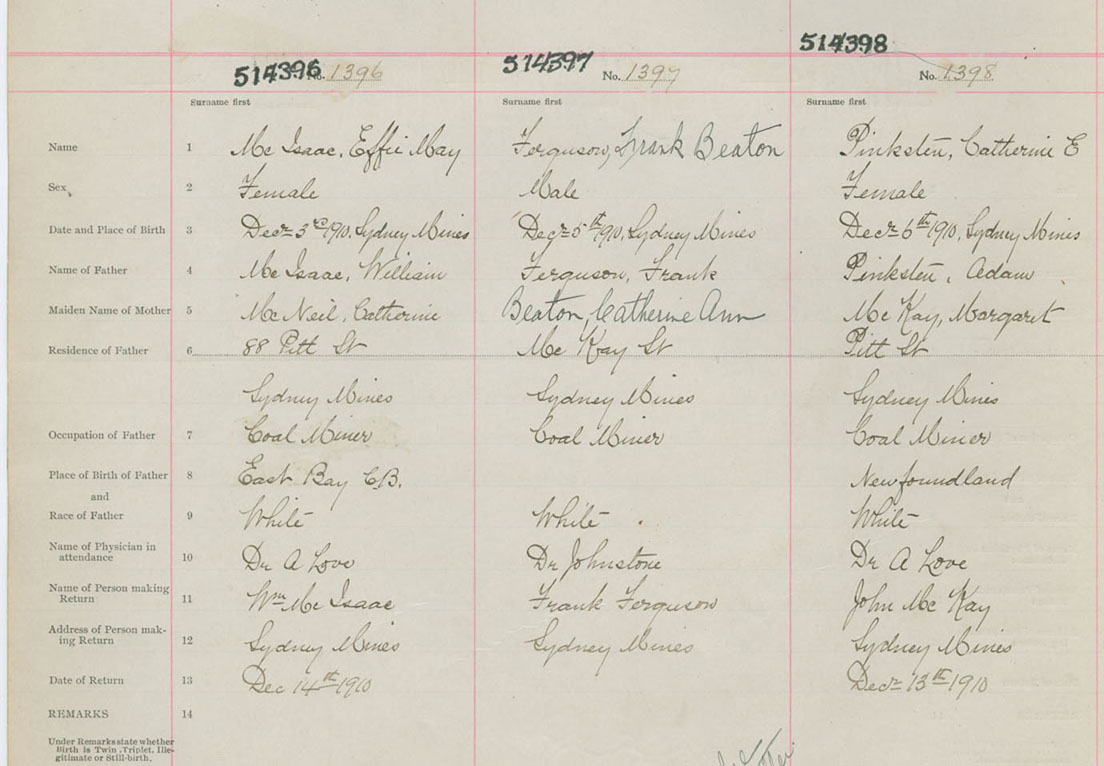 514398
514396 No. 1396 514397 No. 1397 No. 1398
Surname first Surname first Surname first
Name 1 Mc Isaac, Effie May Ferguson, Frank Beaton Pinksten, Catherine E
Sex 2 Female Male Female
Date and Place of Birth 3 Decr 3rd 1910, Sydney Mines Decr 5th 1910, Sydney Mines Decr 6th 1910, Sydney Mines
Name of Father 4 Mc Isaac, William Ferguson, Frank Pinksten, Adam
Maiden Name of Mother 5 Mc Neil, Catherine Beaton, Catherine Ann Mc Kay, Margaret
Residence of Father 6 88 Pitt St Mc Kay St Pitt St
Sydney Mines Sydney Mines Sydney Mines
Occupation of Father 7 Coal Miner Coal Miner Coal Miner
Place of Birth of Father 8 East Bay C.B. Newfoundland
and
Race of Father 9 White White White
Name of Physician in
attendance 10 Dr A Love Dr Johnstone Dr A Love
Name of Person making
Return 11 Wm Mc Isaac Frank Ferguson John Mc Kay
Address of Person mak-
ing Return 12 Sydney Mines Sydney Mines Sydney Mines
Date of Return 13 Dec 14th 1910 Decr 13th 1910
REMARKS 14
Under Remarks state whether
Birth is Twin, Triplet, Ille-
gitimate or Still-birth.